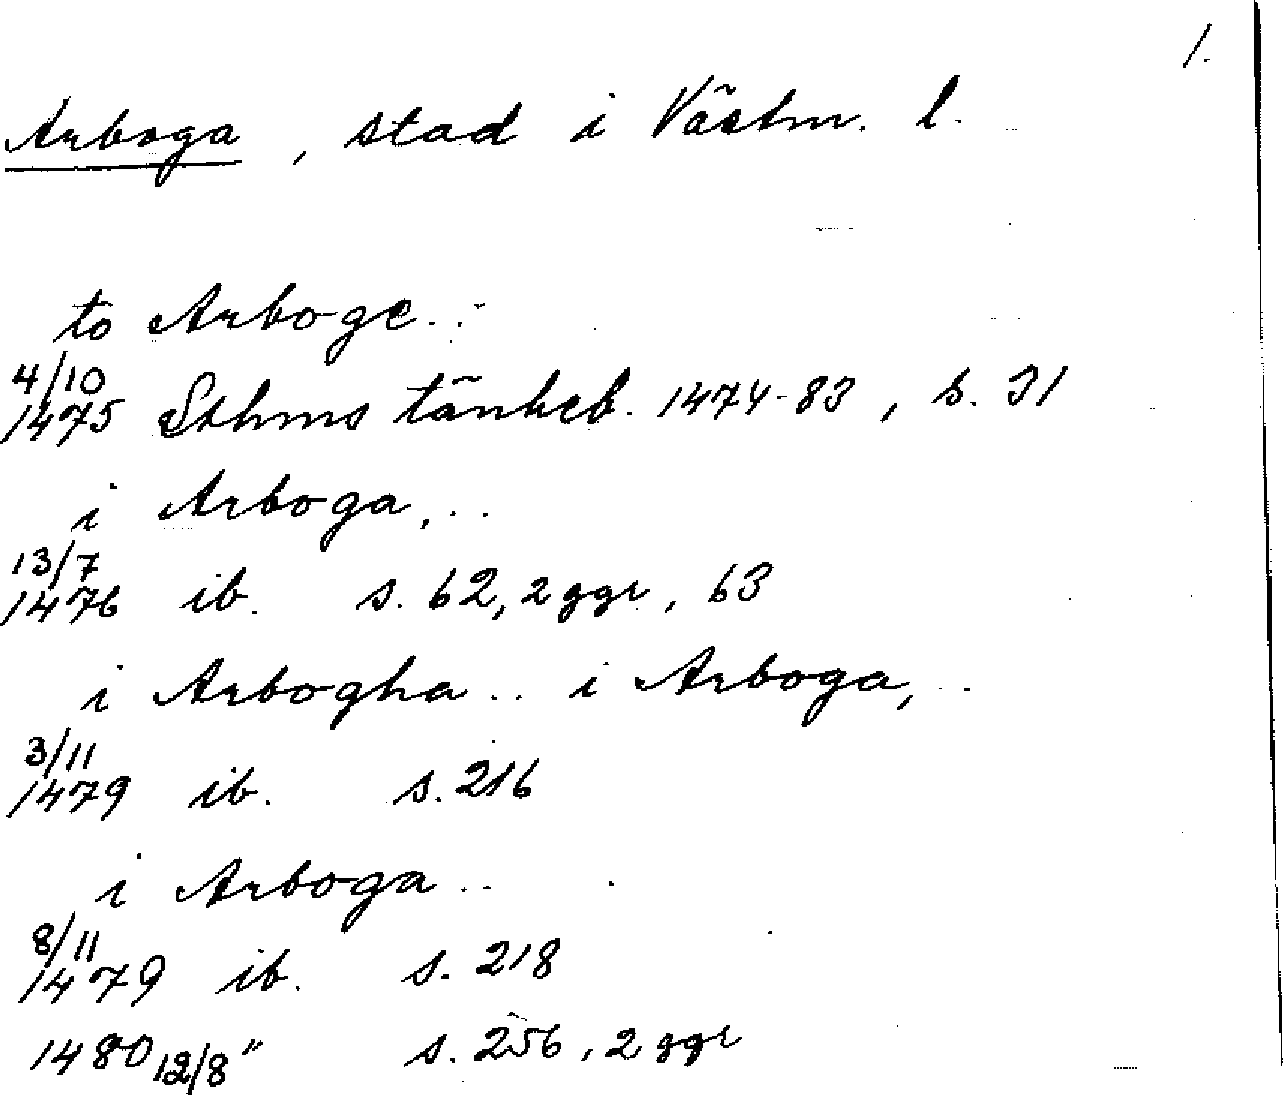 1.
Arboga, stad i Västm. l.
to Arboge..
4/10
1475 Sthms tänkeb. 1474-83, s. 31
i Arboga,..
13/7
1476 ib. s. 62, 2 ggr, 63
i Arbogha.. i Arboga,..
3/11
1479 ib. s. 216
i Arboga..
8/11
1479 ib. s. 218
1480 12/8 " s. 256, 2 ggr